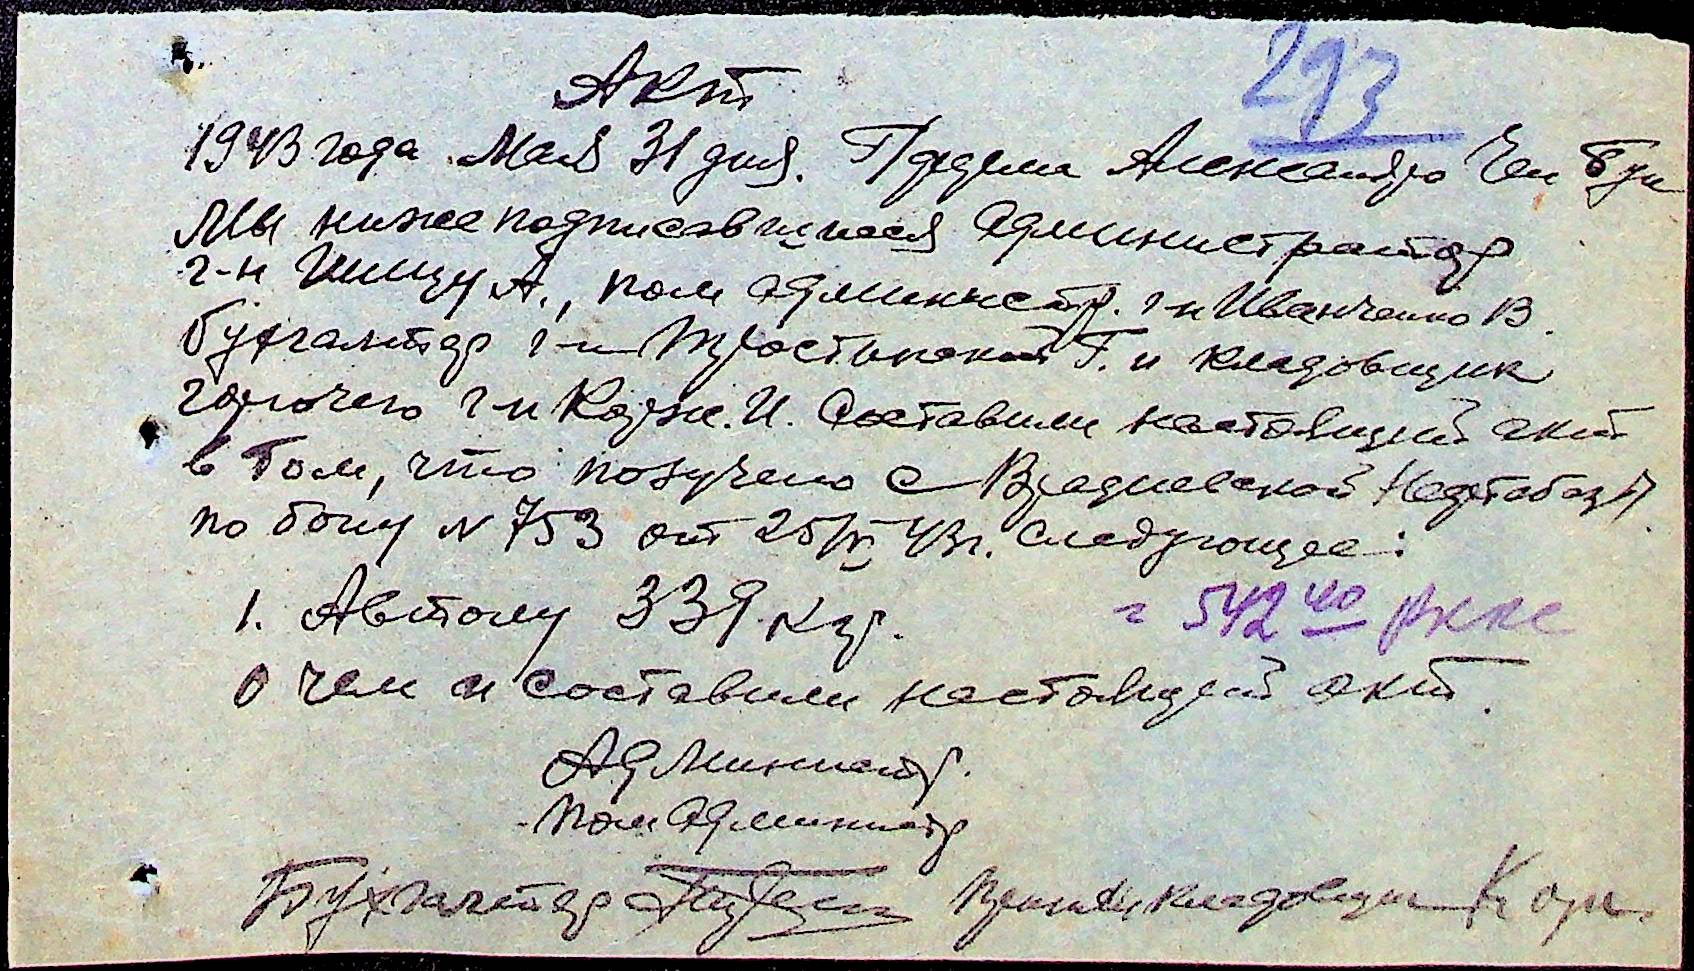 293
Акт
1943 года Мая 31 дня. Александро Чел Бун
Мы нижеподписавшиеся администратор
г-н А., пом администр. г-н Иванченко В.
бухгалтер г-н Г. и кладовщик
горючего г-н Корж. И. Составили настоящий акт
в том, что получено с Врадиевской Нефтебазы
по бону N 753 от 25/V 43г. следующее:
1. Автолу 339 кгр. = 542 40 РККС
о чем и составили настоящий акт.
Администр.
Пом Администр
Бухгалтер Принял кладовщик Корж.